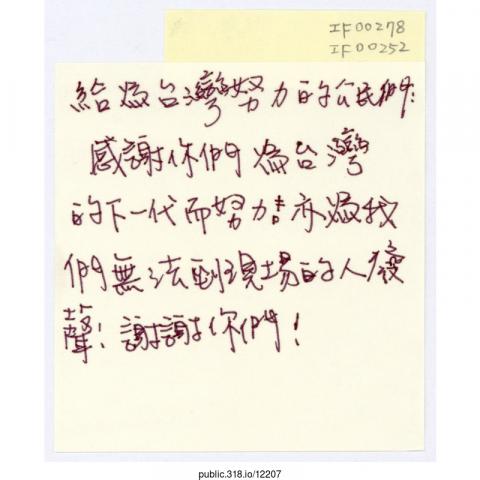 IF00278
IF00252
給為台灣努力的公民們:
感謝你們為台灣
的下一代而努力!亦為我
們無法到現場的人發
聲!謝謝你們!
public.318.io/12207